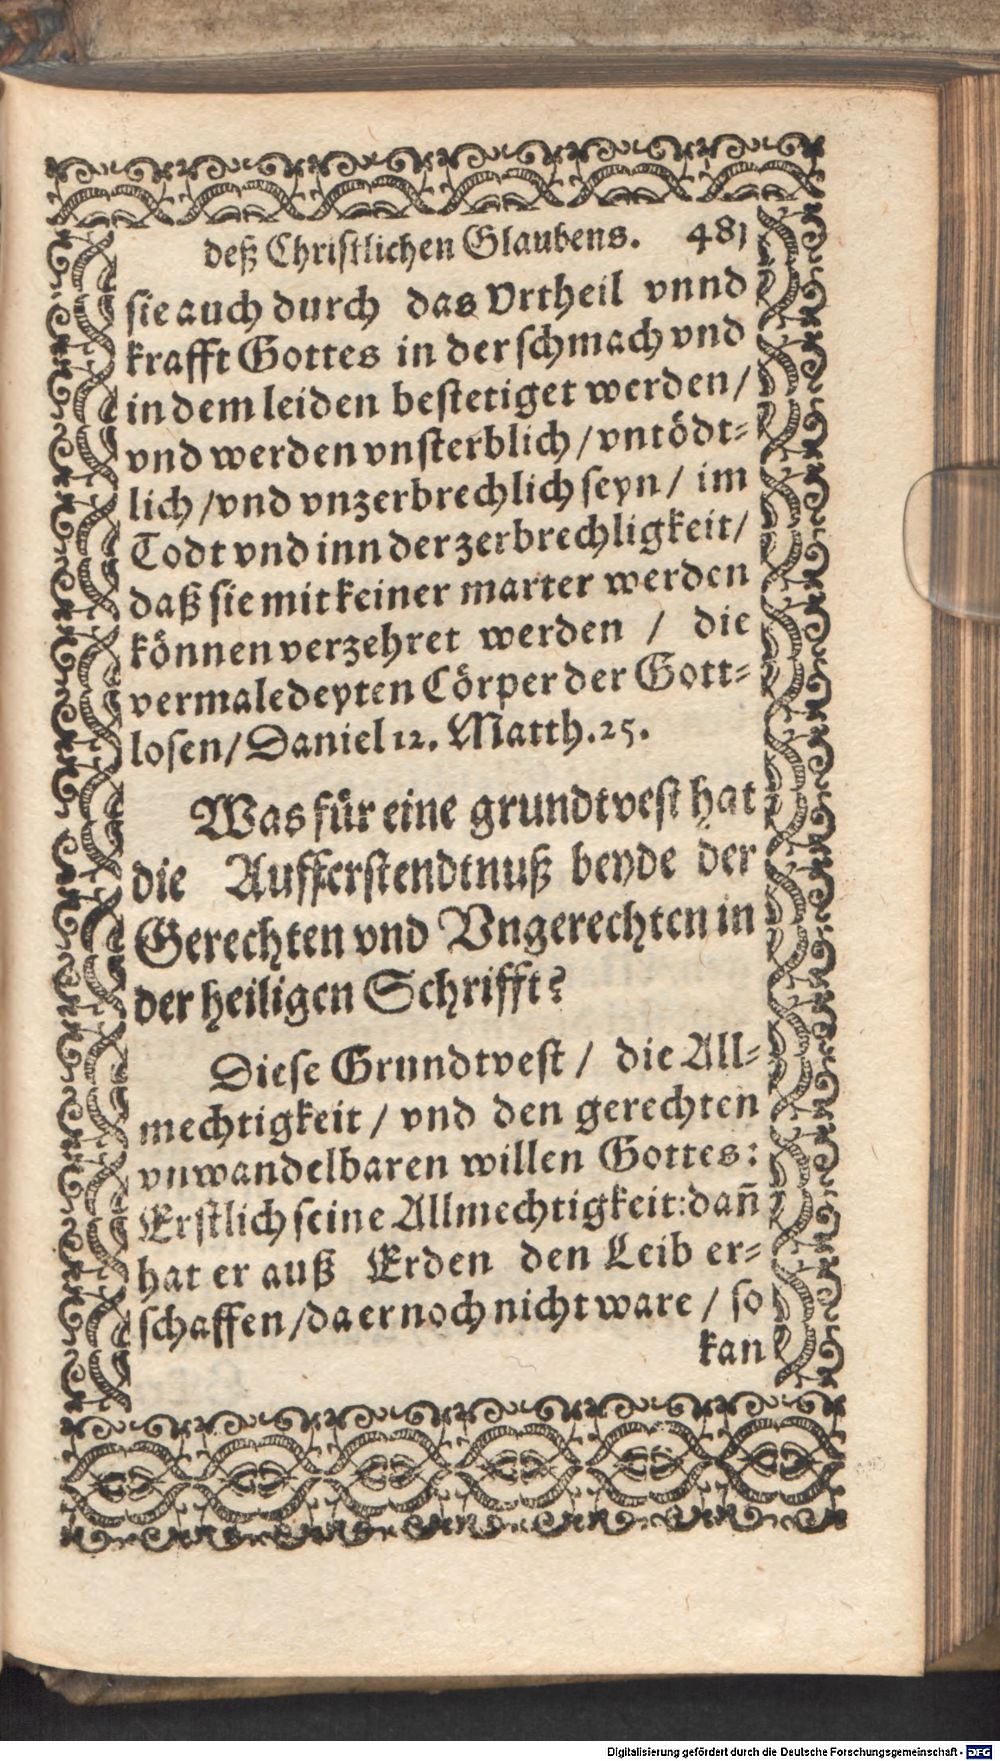 deß Christlichen Glaubens. 481
sie auch durch das Vrtheil vnnd
krafft Gottes in der schmach vnd
in dem leiden bestetiget werden/
vnd werden vnsterblich/vntödt-
lich/vnd vnzerbrechlich seyn/ im
Todt vnd inn der zerbrechligkeit/
daß sie mit keiner marter werden
können verzehret werden / die
vermaledeyten Cörper der Gott-
losen/Daniel 12. Matth.25.
Was für eine grundtvest hat
die Aufferstendtnuß beyde der
Gerechten vnd Vngerechten in
der heiligen Schrifft?
Diese Grundtvest/ die All-
mechtigkeit/ vnd den gerechten
vnwandelbaren willen Gottes:
Erstlich seine Allmechtigkeit:dañ
hat er auß Erden den Leib er-
schaffen/da er noch nicht ware/ so
kan
Digitalisierung gefördert durch die Deutsche Forschungsgemeinschaft - DFG